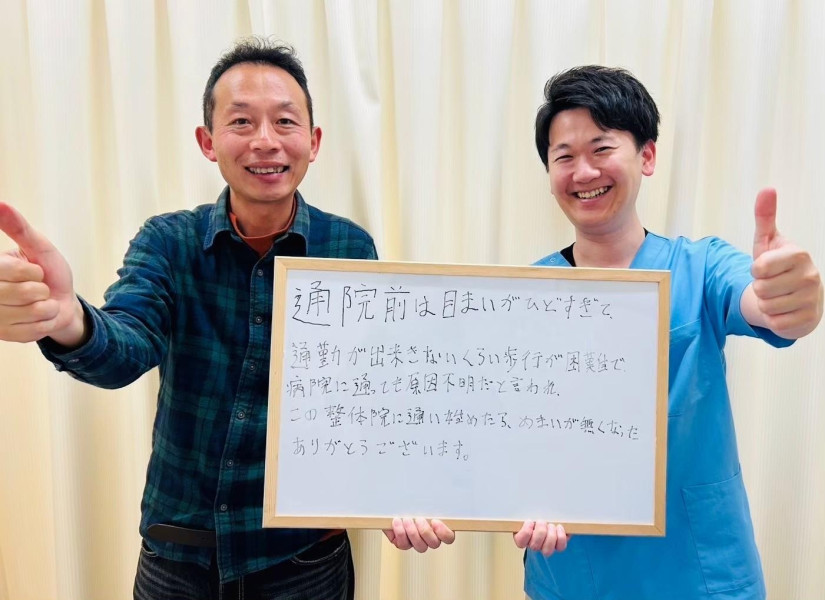 通院前は目まいがひどすぎて、
通勤が出来きないくらい歩行が困難で、
病院に通っても原因不明だと言われ、
この整体院に通い始めたら、めまいが無くなった
ありがとうございます。